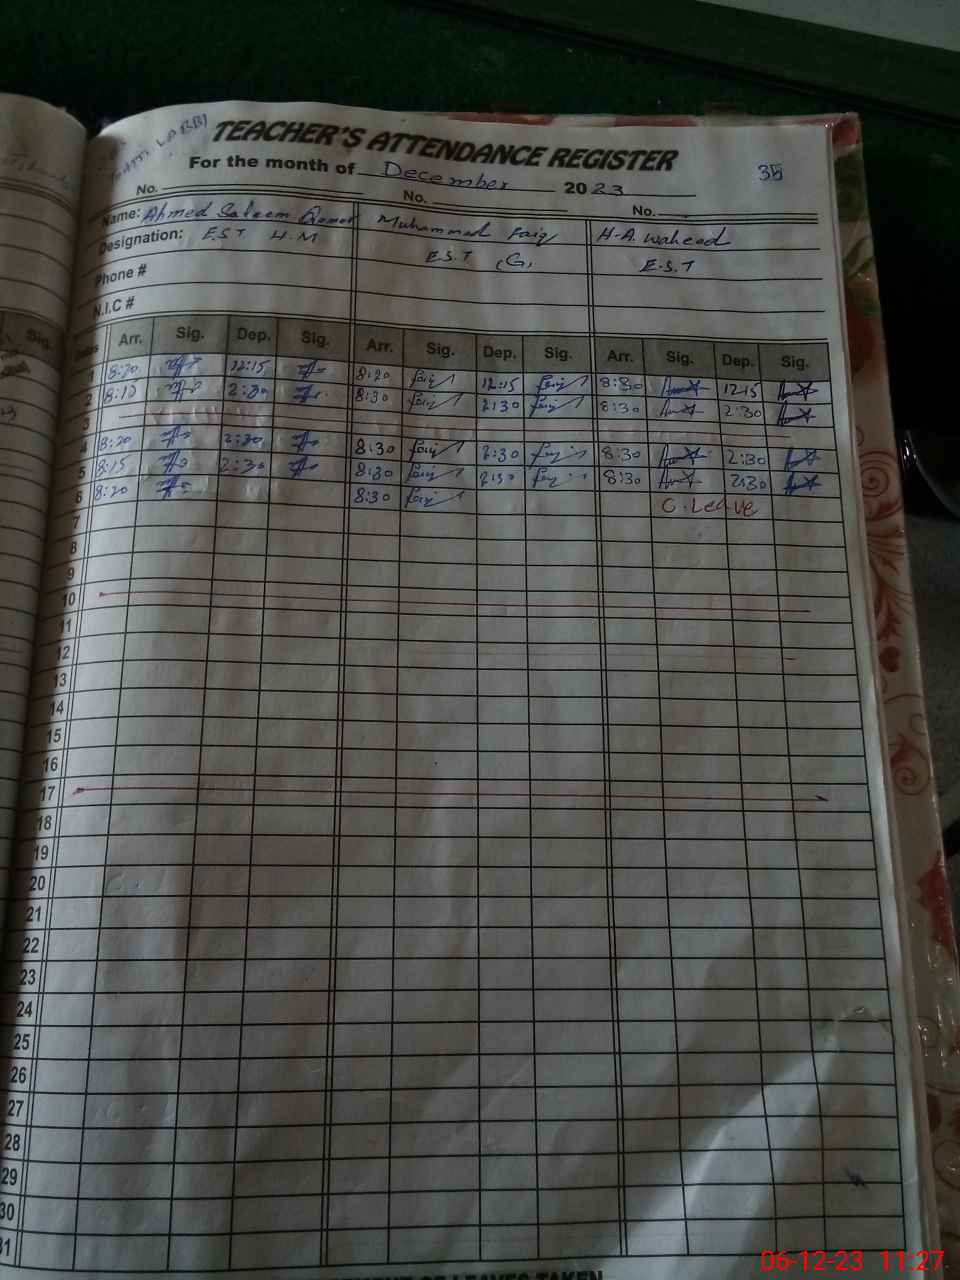 TEACHER'S ATTENDANCE REGISTER
35
For the month of December 2023
No. No. No.
Name: Ahmed Saleem Muhammad Faiq H.A. Waheed
Designation: E.S.T H.M E.S.T (G) E.S.T
Phone #
N.I.C #
Dates Arr. Sig. Dep. Sig. Arr. Sig. Dep. Sig. Arr. Sig. Dep. Sig.
1 8:20 12:15 8:20 faiq 12:15 faiq 8:30 12:15
2 8:10 2:30 8:30 faiq 2:30 faiq 8:30 2:30
3
4 8:20 2:30 8:30 faiq 2:30 faiq 8:30 2:30
5 8:15 2:30 8:30 faiq 2:30 faiq 8:30 2:30
6 8:20 8:30 faiq C. Leave
7
8
9
10
11
12
13
14
15
16
17
18
19
20
21
22
23
24
25
26
27
28
29
30
31
OF LEAVES TAKEN
06-12-23 11:27